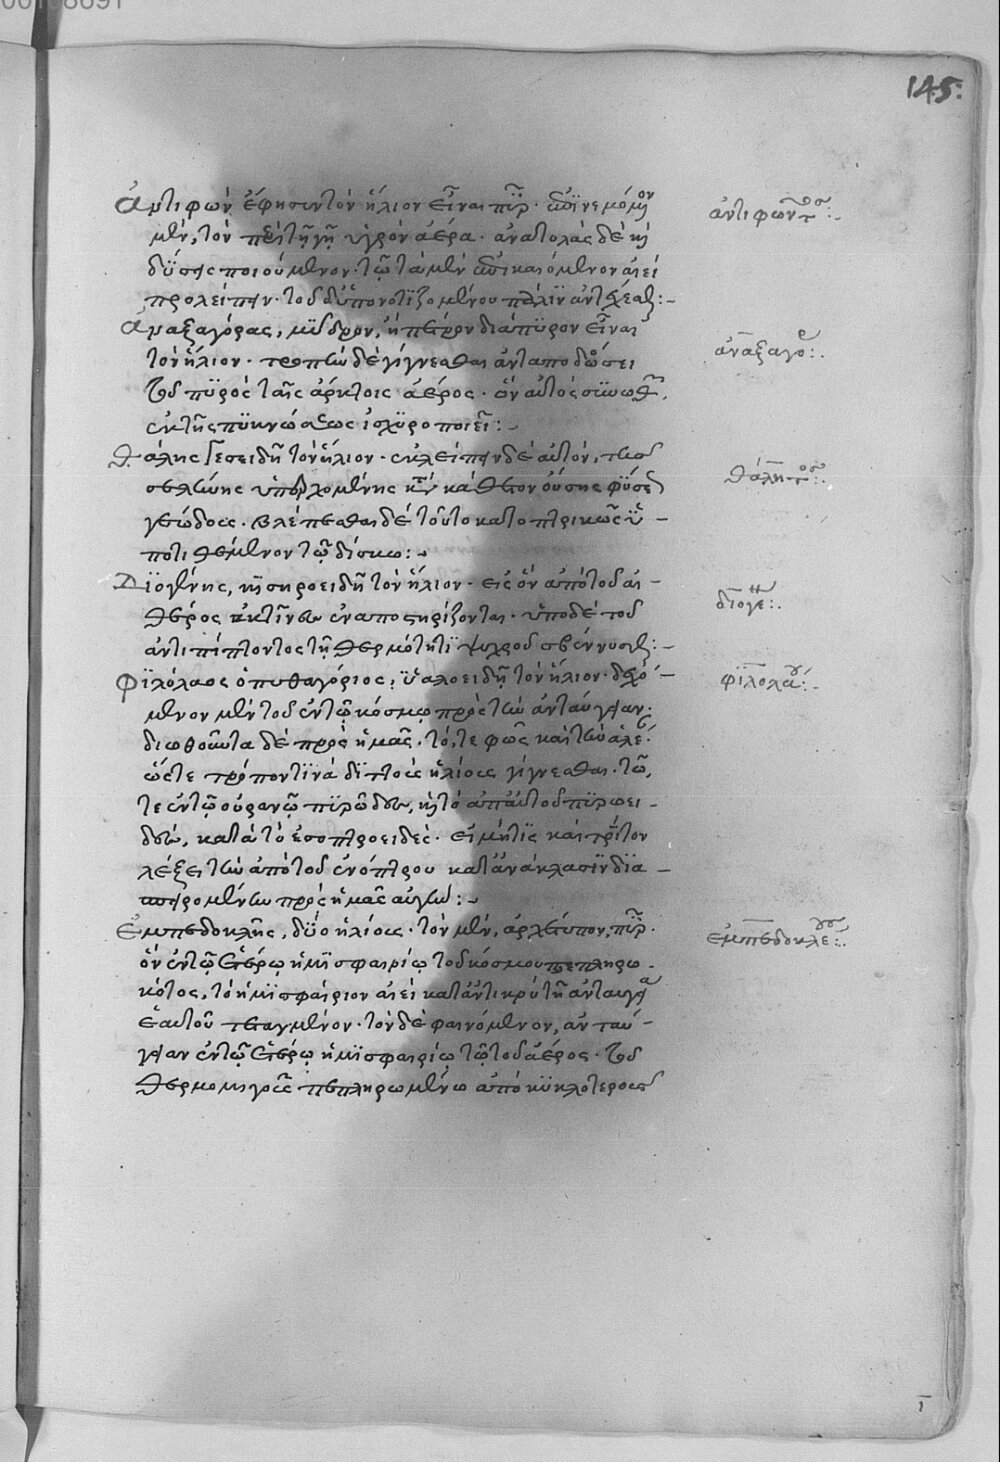 145:
Ἀντιφῶν ἔφησεν τὸν ἥλιον εἶναι πῦρ· ἐπινεμόμενον ἀντιφῶντος:
μὲν, τὸν περὶ τῇ γῇ ὑγρὸν ἀέρα· ἀνατολὰς δὲ καὶ
δύσεις ποιούμενον· τῷ τὰ μὲν ἐπικαιόμενον αἰεὶ
προλείπειν· τοῦ δ' ὑπονοτιζομένου πάλιν ἀντέχεσθαι:
Ἀναξαγόρας, μύδρον, ἢ πέτρον διάπυρον εἶναι ἀναξαγό:
τὸν ἥλιον· τροπὴν δὲ γίγνεσθαι ἀνταποδώσει
τοῦ πυρὸς ταῖς ἄρκτοις ἀέρος· ὃν αὐτὸς συνωθῶν,
ἐκ τῆς πυκνώσεως ἰσχυροποιεῖ:
Θάλης γεοειδῆ τὸν ἥλιον· ἐκλείπειν δὲ αὐτὸν, τῆς θάλητος:
σελήνης ὑπερχομένης κατὰ κάθετον οὔσης φύσει
γεώδους. βλέπεσθαι δὲ τοῦτο κατοπτρικῶς ὑ
ποτιθέμενον τῷ δίσκῳ:
Διογένης, κισηροειδῆ τὸν ἥλιον· εἰς ὃν ἀπὸ τοῦ αἰ διογέ:
θέρος ἀκτῖνες ἐναποστηρίζονται· ὑπὸ δὲ τοῦ
ἀντιπίπτοντος τῇ θερμότητι ψυχροῦ σβέννυσθαι:
Φιλόλαος ὁ πυθαγόριος, ὑαλοειδῆ τὸν ἥλιον· δεχό φιλολάου:
μενον μὲν τοῦ ἐν τῷ κόσμῳ πρὸς τὴν ἀνταύγειαν·
διωθοῦντα δὲ πρὸς ἡμᾶς, τό, τε φῶς καὶ τὴν ἀλέαν·
ὥστε τρόπον τινὰ διττοὺς ἡλίους γίγνεσθαι· τῶ,
τε ἐν τῷ οὐρανῷ πυρῶδες, καὶ τὸ ἀπ' αὐτοῦ πυροει
δὲς, κατὰ τὸ ἐσοπτροειδές· εἰ μή τις καὶ τρίτον
λέξει τὴν ἀπὸ τοῦ ἐνόπτρου κατ' ἀνάκλασιν δια
σπειρομένην πρὸς ἡμᾶς αὐγήν:
Ἐμπεδοκλῆς, δύο ἡλίους· τὸν μὲν, ἀρχέτυπον, πῦρ· ἐμπεδοκλέους:
ὂν ἐν τῷ ἑτέρῳ ἡμισφαιρίῳ τοῦ κόσμου πεπληρω
κότος, τὸ ἡμισφαίριον αἰεὶ κατ' ἀντικρὺ τῇ ἀνταυγείᾳ
ἑαυτοῦ τεταγμένον· τὸν δὲ φαινόμενον, ἀνταύ
γειαν ἐν τῷ ἑτέρῳ ἡμισφαιρίῳ τῷ τοῦ ἀέρος· τοῦ
θερμομιγοῦς πεπληρωμένῳ ἀπὸ κυκλοτεροῦς